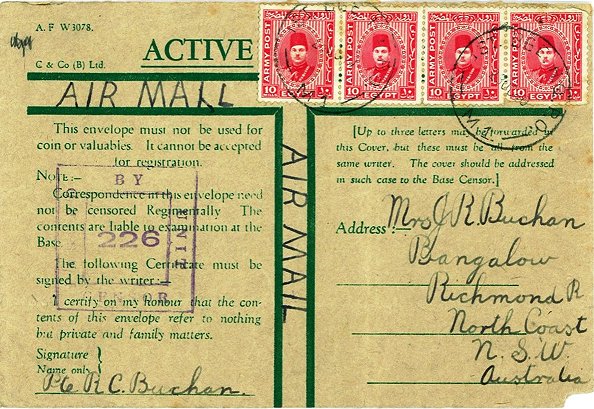 A. F W3078.
ACTIVE
C & Co (B) Ltd.
ARMY POST
10 EGYPT ١٠
ARMY POST
10 EGYPT ١٠
ARMY POST
10 EGYPT ١٠
ARMY POST
10 EGYPT ١٠
AIR MAIL
This envelope must not be used for
coin or valuables. It cannot be accepted
for registration.
NOTE:–
Correspondence in this envelope need
not be censored Regimentally. The
contents are liable to examination at the
Base.
The following Certificate must be
signed by the writer:–
I certify on my honour that the con-
tents of this envelope refer to nothing
but private and family matters.
Signature
Name only
Pte R. C. Buchan.
BY
226
AIR MAIL
[Up to three letters may be forwarded in
this Cover, but these must be all from the
same writer. The cover should be addressed
in such case to the Base Censor.]
Address :–
Mrs J. R. Buchan
Bangalow
Richmond R
North Coast
N. S. W.
Australia